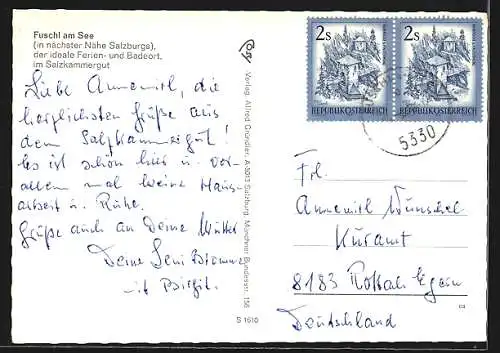 Fuschl am See
(in nächster Nähe Salzburgs),
der ideale Ferien- und Badeort,
im Salzkammergut
Liebe Annemirl, die
herzlichsten Grüße aus
dem Salzkammergut!
Es ist schön hier u. vor
allem mal keine Haus-
arbeit u. Ruhe.
Grüße auch an Deine Mutter
Deine
mit Birgit.
Verlag Alfred Gründler, A-5013 Salzburg, Münchner Bundesstr. 156
S 1610
2s
REPUBLIK ÖSTERREICH
2s
REPUBLIK ÖSTERREICH
5330
Frl.
Annemirl Wunschel
Kuramt
8183 Rottach-Egern
Deutschland